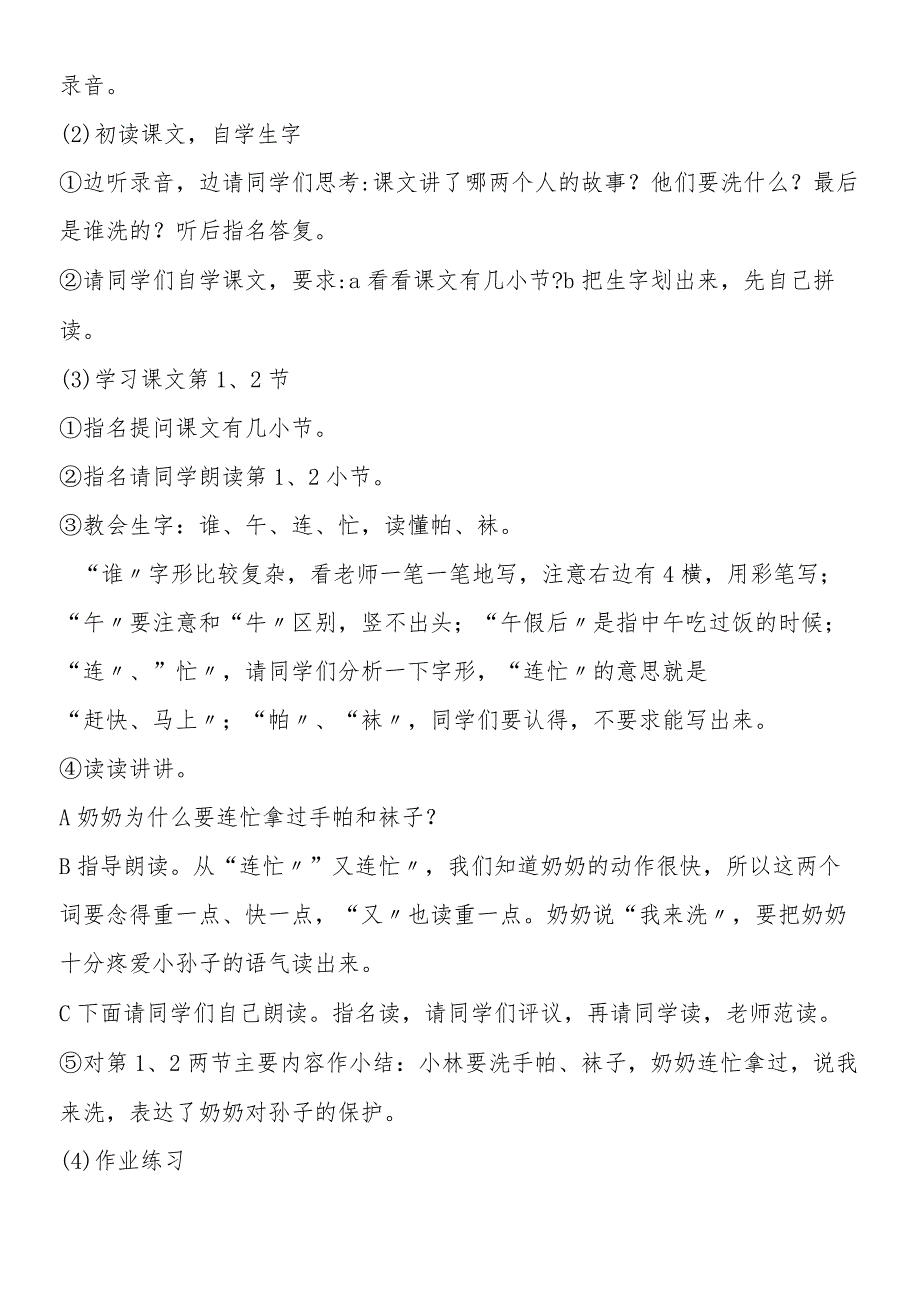 录音。
(2)初读课文，自学生字
①边听录音，边请同学们思考:课文讲了哪两个人的故事？他们要洗什么？最后
是谁洗的？听后指名答复。
②请同学们自学课文，要求:a看看课文有几小节?b把生字划出来，先自己拼
读。
(3)学习课文第1、2节
①指名提问课文有几小节。
②指名请同学朗读第1、2小节。
③教会生字：谁、午、连、忙，读懂帕、袜。
“谁〃字形比较复杂，看老师一笔一笔地写，注意右边有4横，用彩笔写；
“午〃要注意和“牛〃区别，竖不出头；“午假后〃是指中午吃过饭的时候；
“连〃、”忙〃，请同学们分析一下字形，“连忙〃的意思就是
“赶快、马上〃；“帕〃、“袜〃，同学们要认得，不要求能写出来。
④读读讲讲。
A奶奶为什么要连忙拿过手帕和袜子？
B指导朗读。从“连忙〃”又连忙〃，我们知道奶奶的动作很快，所以这两个
词要念得重一点、快一点，“又〃也读重一点。奶奶说“我来洗〃，要把奶奶
十分疼爱小孙子的语气读出来。
C下面请同学们自己朗读。指名读，请同学们评议，再请同学读，老师范读。
⑤对第1、2两节主要内容作小结：小林要洗手帕、袜子，奶奶连忙拿过，说我
来洗，表达了奶奶对孙子的保护。
(4)作业练习